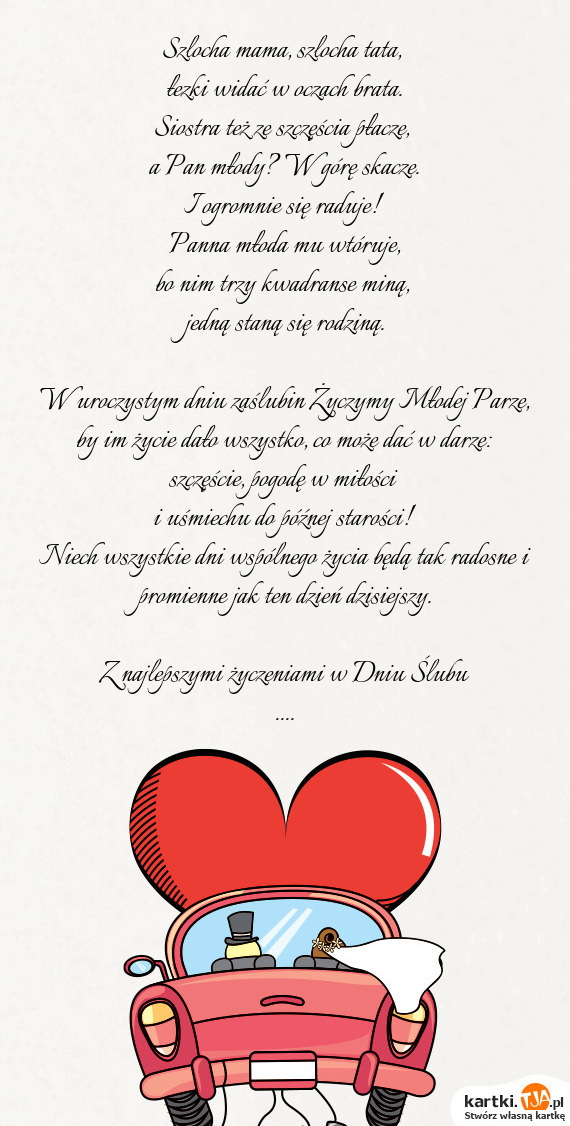 Szlocha mama, szlocha tata,
łezki widać w oczach brata.
Siostra też ze szczęścia płacze,
a Pan młody? W górę skacze.
I ogromnie się raduje!
Panna młoda mu wtóruje,
bo nim trzy kwadranse miną,
jedną staną się rodziną.
W uroczystym dniu zaślubin Życzymy Młodej Parze,
by im życie dało wszystko, co może dać w darze:
szczęście, pogodę w miłości
i uśmiechu do późnej starości!
Niech wszystkie dni wspólnego życia będą tak radosne i
promienne jak ten dzień dzisiejszy.
Z najlepszymi życzeniami w Dniu Ślubu
....
kartki.TJA.pl
Stwórz własną kartkę